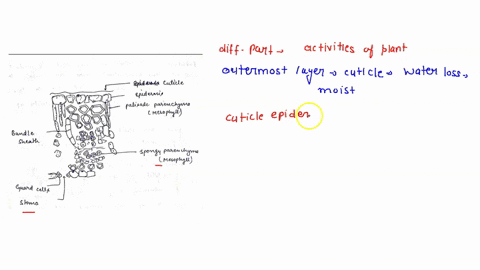 diff. part → activities of plant
outermost layer → cuticle → water loss,
moist
cuticle epider
cuticle
epidermis
palisade parenchyma
(Mesophyll)
Bundle
sheath
spongy parenchyma
(Mesophyll)
Guard cells
Stoma